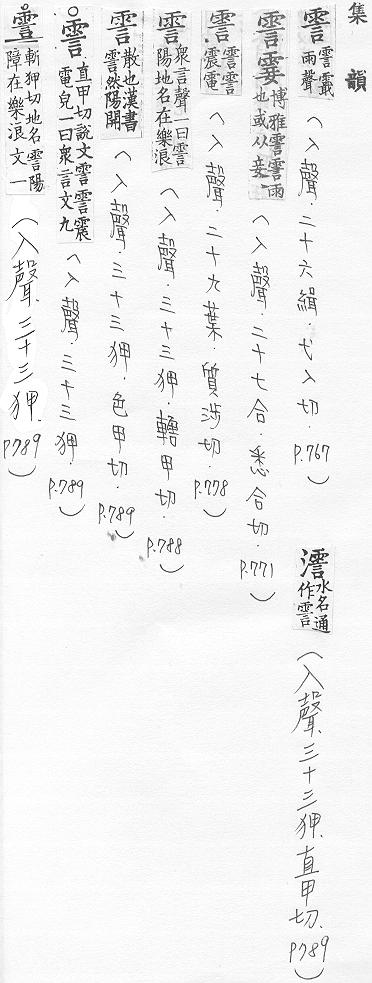 集韻
霅 霅霵雨聲（入聲．二十六緝．弋入切．P.767）
澐水名通作霅（入聲．三十三狎．直甲切．P.789）
霅霎博雅霅霅雨也或从妾（入聲．二十七合．悉合切．P.771）
霅霅霅震電（入聲．二十九葉．質涉切．P.778）
霅眾言聲一曰霅陽地名在樂浪（入聲．三十三狎．轄甲切．P.788）
霅散也漢書霅然陽開（入聲．三十三狎．色甲切．P.789）
霅直甲切說文霅霅震電皃一曰眾言文九（入聲．三十三狎．P.789）
斬狎切地名霅陽障在樂浪文一（入聲．三十三狎．P.789）